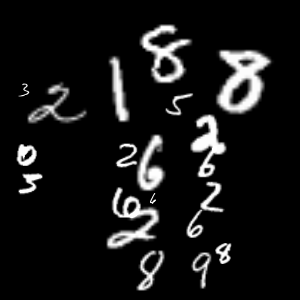 3 2 1 8 5 8
0 2 6 2 6
5
6 6 2
2 6
8 9 8